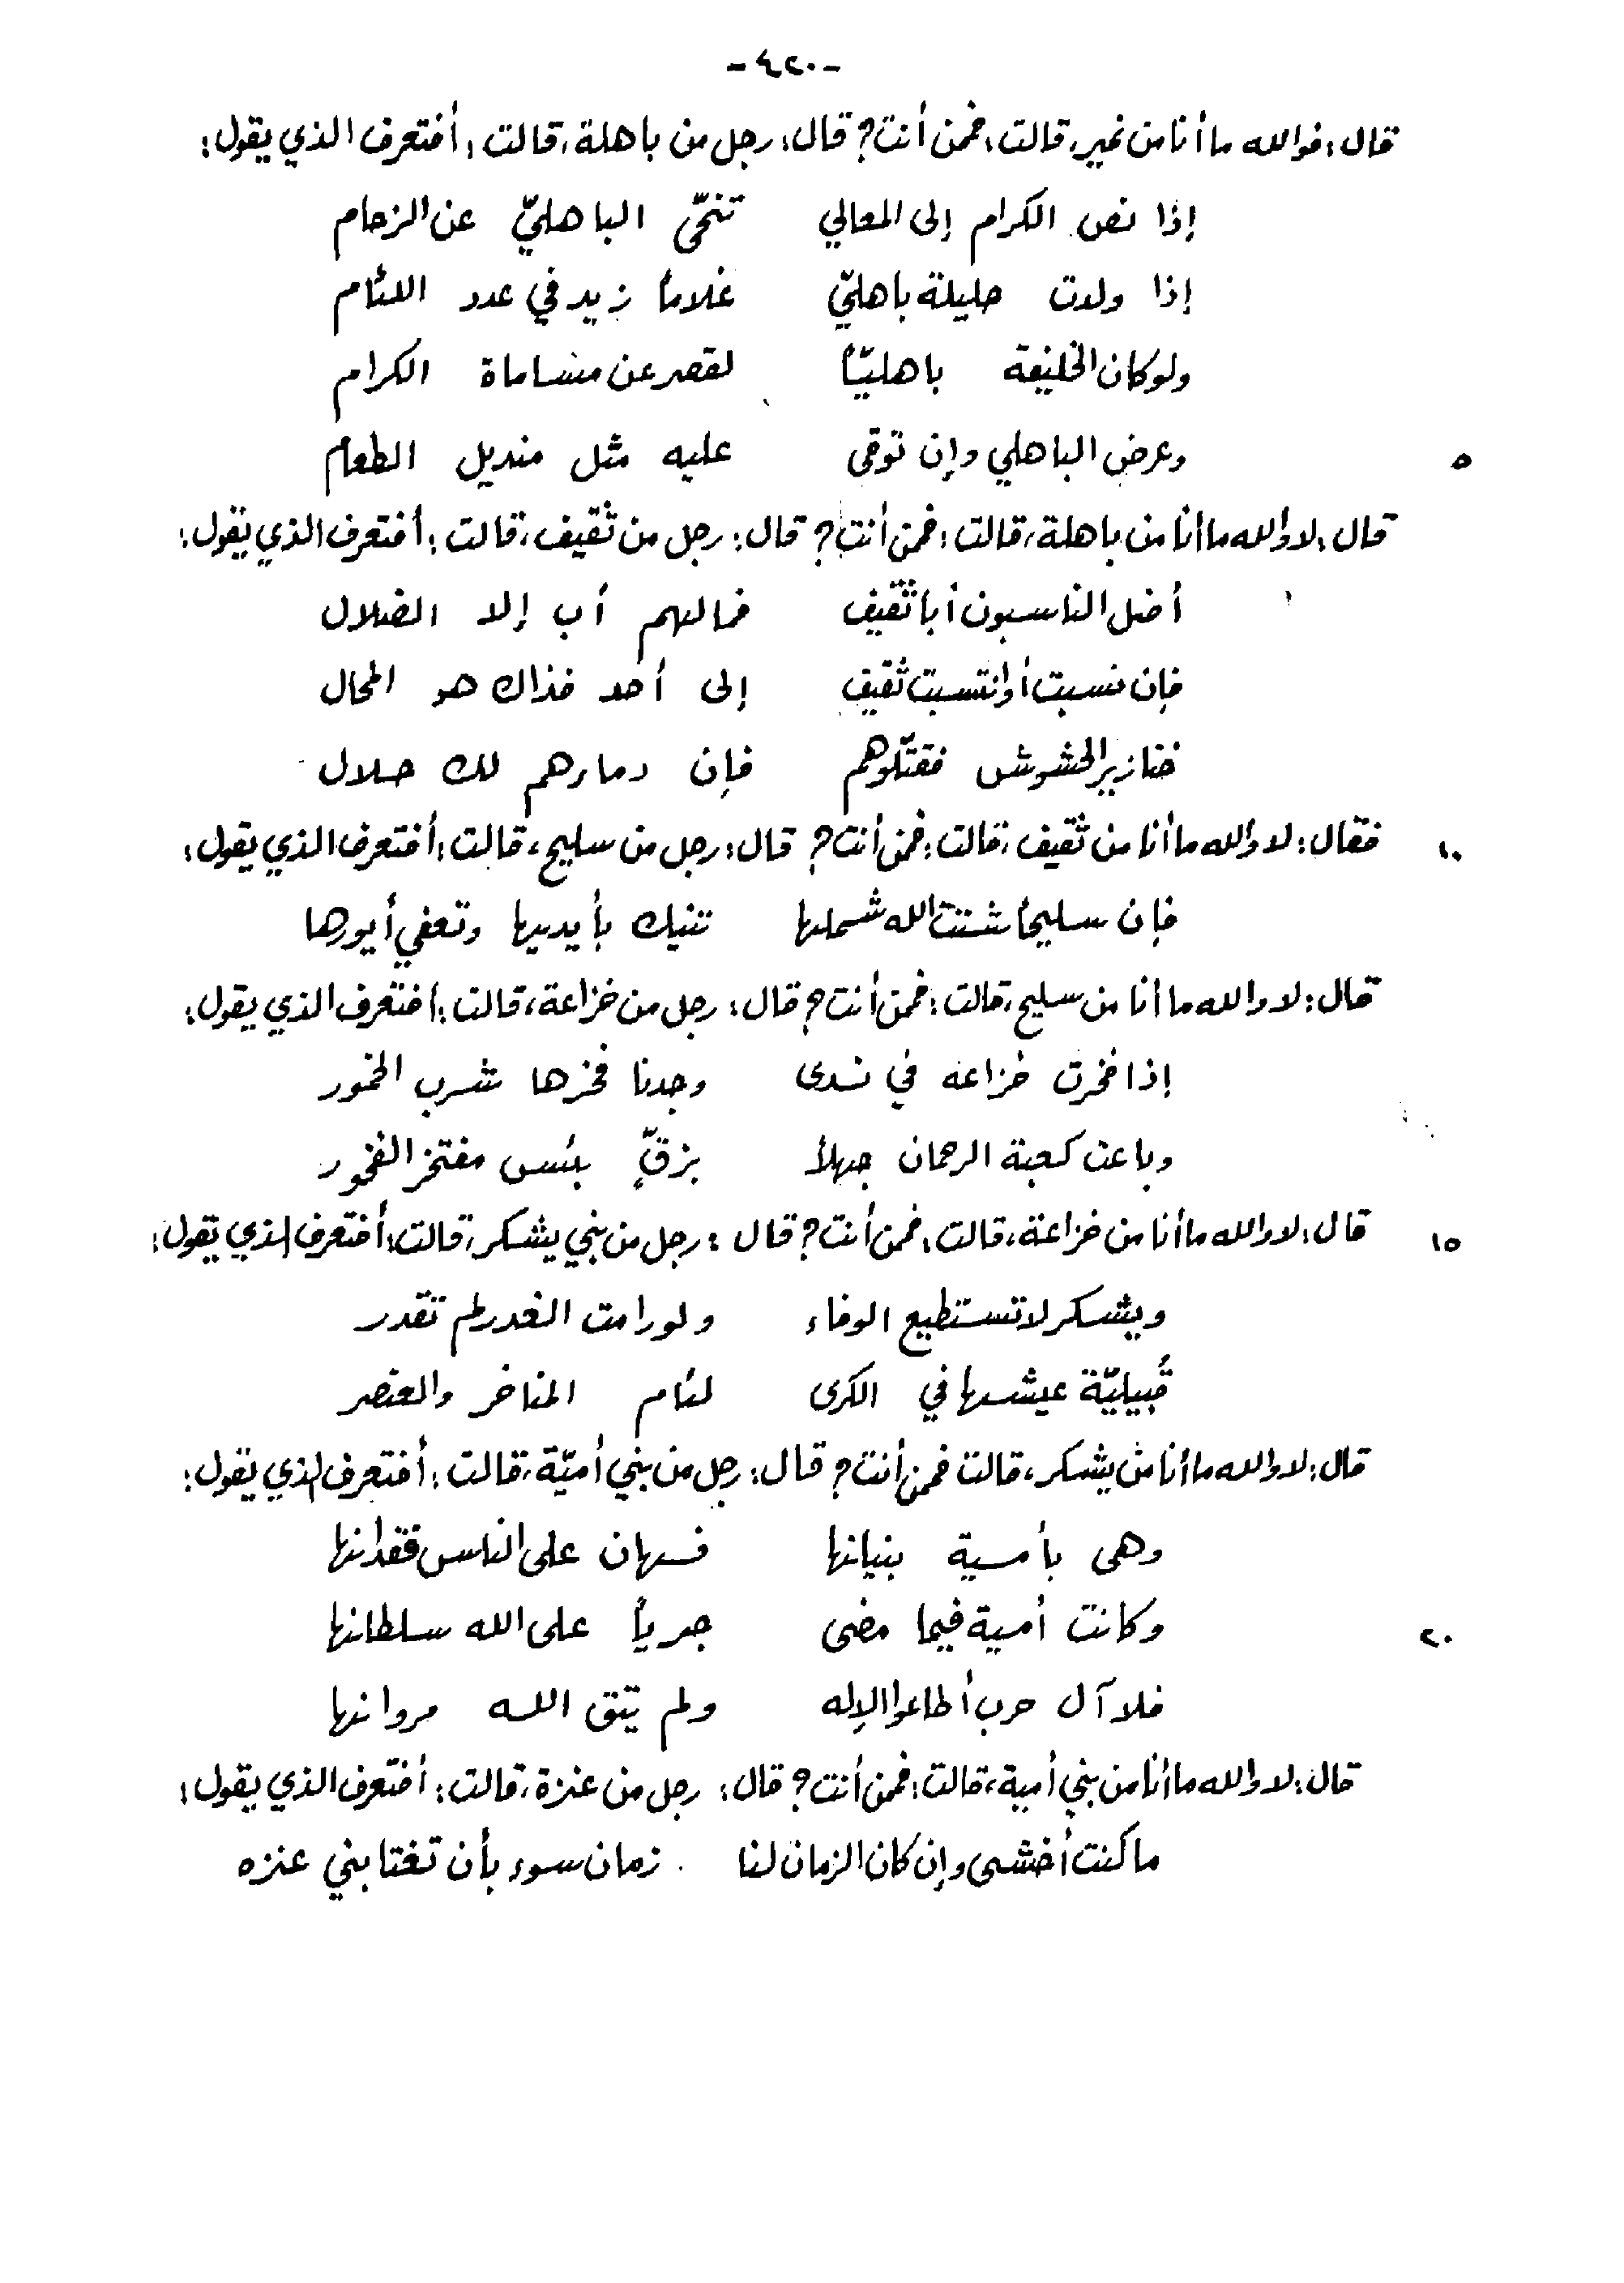 - ٤٢٠ -
قال: فوالله ما أنا من نمير، قالت: فممن أنت؟ قال: رجل من باهلة، قالت: أفتعرف الذي يقول:
إذا نص الكرام إلى المعالي تنحّى الباهليّ عن الزحام
إذا ولدت حليلة باهليّ غلاماً زيد في عدد اللئام
ولو كان الخليفة باهليّاً لقصر عن مساماة الكرام
٥ وعرض الباهلي وإن توقى عليه مثل منديل الطعام
قال: لا والله ما أنا من باهلة، قالت: فممن أنت؟ قال: رجل من ثقيف، قالت: أفتعرف الذي يقول:
أضل الناسبون أبا ثقيف فما لهم أب إلا الضلال
فإن نسبت أو انتسبت ثقيف إلى أحد فذاك هو المحال
خنازير الحشوش فقتّلوهم فإن دماءهم لك حلال
١٠ فقال: لا والله ما أنا من ثقيف، قالت: فممن أنت؟ قال: رجل من سليح، قالت: أفتعرف الذي يقول:
فإن سليحاً شتت الله شملها تنيك بأيديها وتعفي أيورها
قال: لا والله ما أنا من سليح، قالت: فممن أنت؟ قال: رجل من خزاعة، قالت: أفتعرف الذي يقول:
إذا فخرت خزاعة في ندى وجدنا فخرها شرب الخمور
وباعت كعبة الرحمان جهلاً بزقٍّ بئس مفتخر الفخور
١٥ قال: لا والله ما أنا من خزاعة، قالت: فممن أنت؟ قال: رجل من بني يشكر، قالت: أفتعرف الذي يقول:
ويشكر لا تستطيع الوفاء ولو رامت الغدر لم تقدر
قُبيليّة عيشها في الكرى لئام المناخر والعنصر
قال: لا والله ما أنا من يشكر، قالت فممن أنت؟ قال: رجل من بني أميّة، قالت: أفتعرف الذي يقول:
وهى بأمية بنيانها فهان على الناس فقدانها
٢٠ وكانت أمية فيما مضى جرياً على الله سلطانها
فلا آل حرب أطاعوا الإله ولم يتق الله مروانها
قال: لا والله ما أنا من بني أمية، قالت: فممن أنت؟ قال: رجل من عنزة، قالت: أفتعرف الذي يقول:
ما كنت أخشى وإن كان الزمان لنا زمان سوء بأن تغتابني عنزه